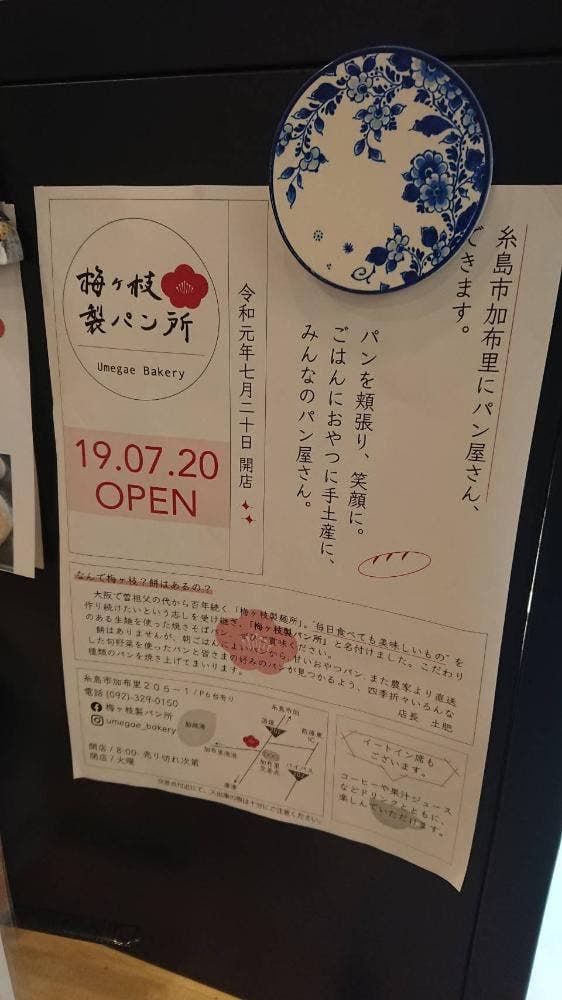 糸島市加布里にパン屋さん、
できます。
パンを頬張り、笑顔に。
ごはんにおやつに手土産に、
みんなのパン屋さん。
令和元年七月二十日 開店
梅ヶ枝
製パン所
Umegae Bakery
19.07.20
OPEN
なんで梅ヶ枝？餅はあるの？
大阪で曽祖父の代から百年続く「梅ヶ枝製麺所」。"毎日食べても美味しいもの"を
作り続けたいという志しを受け継ぎ、「梅ヶ枝製パン所」と名付けました。こだわり
のある生麺を使った焼きそばパン、ぜひご賞味ください。
餅はありませんが、朝ごはんによいパンから、甘いおやつパン、また農家より直送
した旬野菜を使ったパンと皆さまの好みのパンが見つかるよう、四季折々いろんな
種類のパンを焼き上げてまいります。
店長 土肥
糸島市加布里２０５－１/P6台有り
電話 (092)-329-0150
梅ヶ枝製パン所
umegae_bakery
開店 / 8:00- 売り切れ次第
閉店 / 火曜
糸島市街
前原東
IC
加布里
交差点
バイパス
唐津
交差点付近にて、入出庫の際は十分にご注意ください。
イートイン席も
ございます。
コーヒーや果汁ジュース
などドリンクとともに、
楽しんでいただけます。